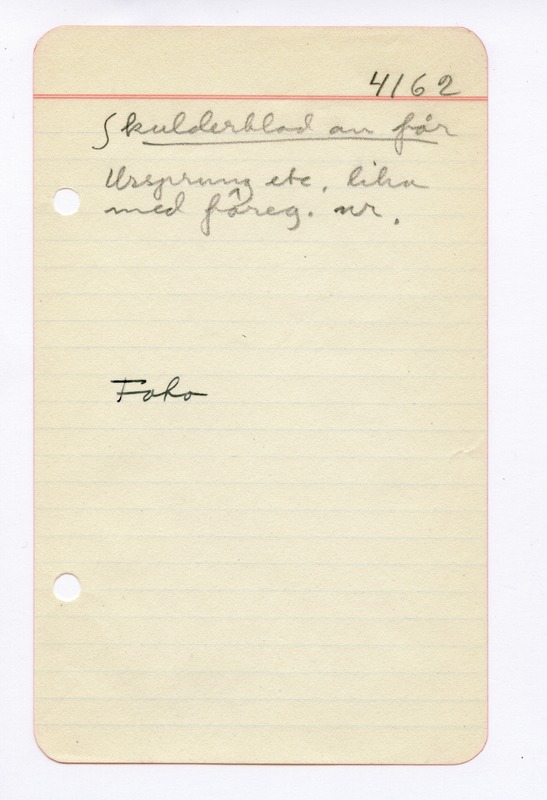 4162
Skulderblad av får
Ursprung etc. lika
med föreg. nr.
Foto